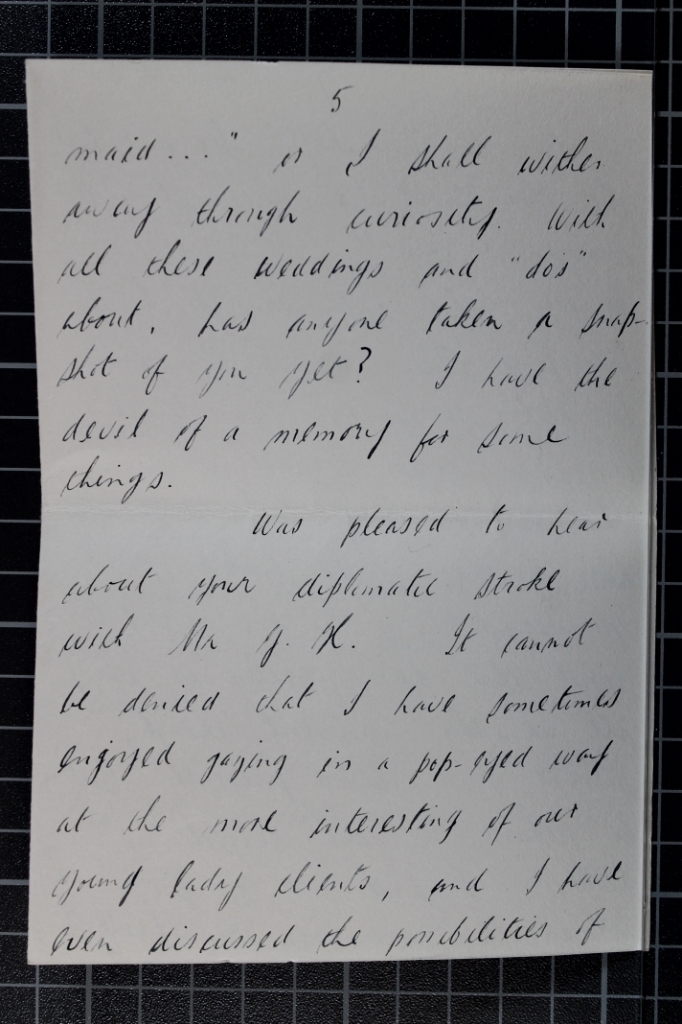 5
maid..." or I shall wither
away through curiosity. With
all these weddings and "do's"
about, has anyone taken a snap-
shot of you yet? I have the
devil of a memory for some
things.
Was pleased to hear
about your diplomatic stroke
with Mr G. H. It cannot
be denied that I have sometimes
enjoyed gazing in a pop-eyed way
at the more interesting of our
young lady clients, and I have
even discussed the possibilities of